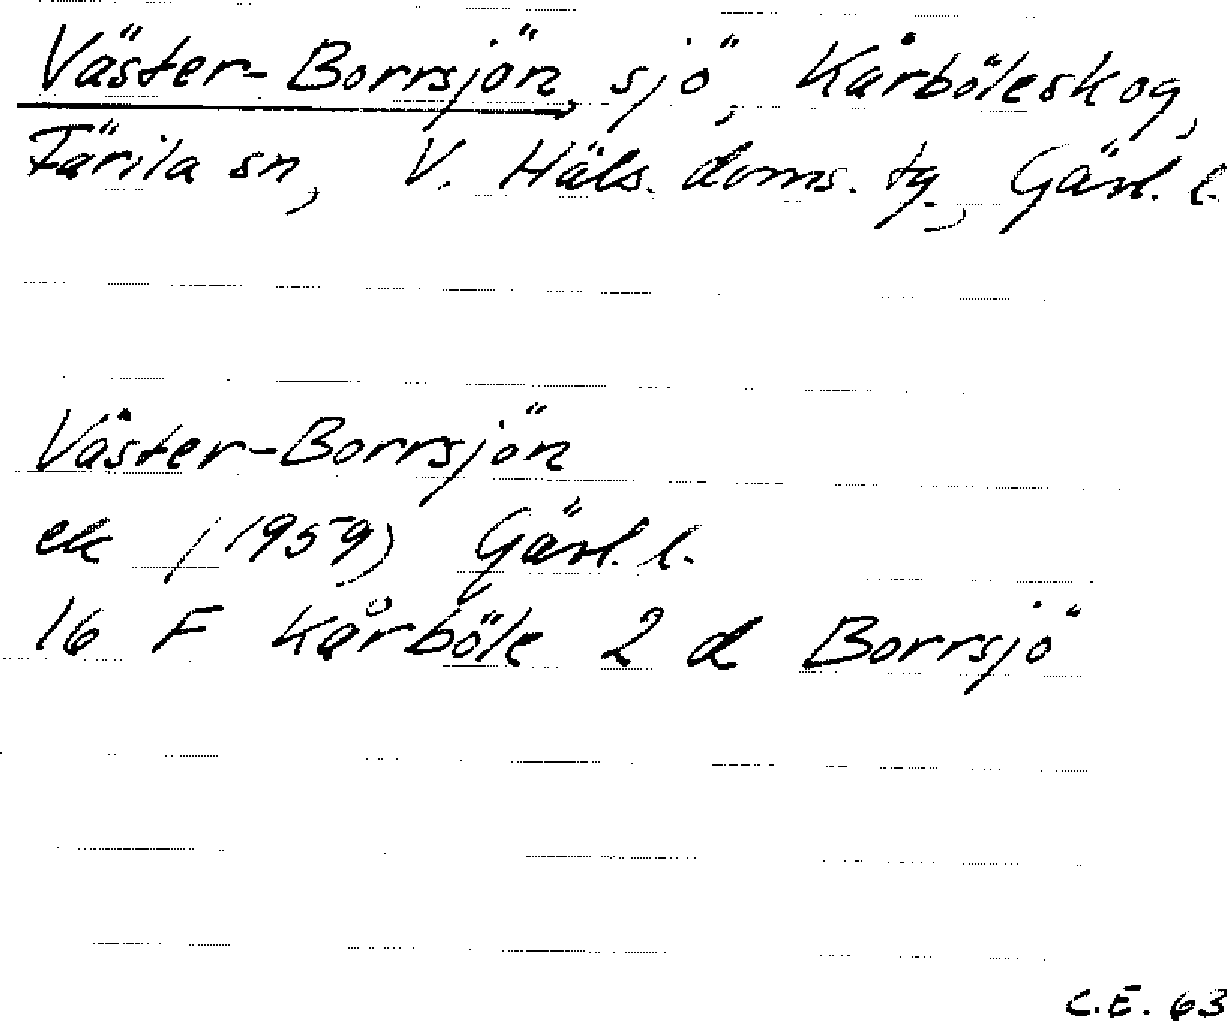 Väster-Borrsjön, sjö, Kårböleskog,
Färila sn, V. Häls. doms. tg., Gävl. l.
Väster-Borrsjön
ek (1959) Gävl. l.
16 F Kårböle 2 d Borrsjö
C.E. 63